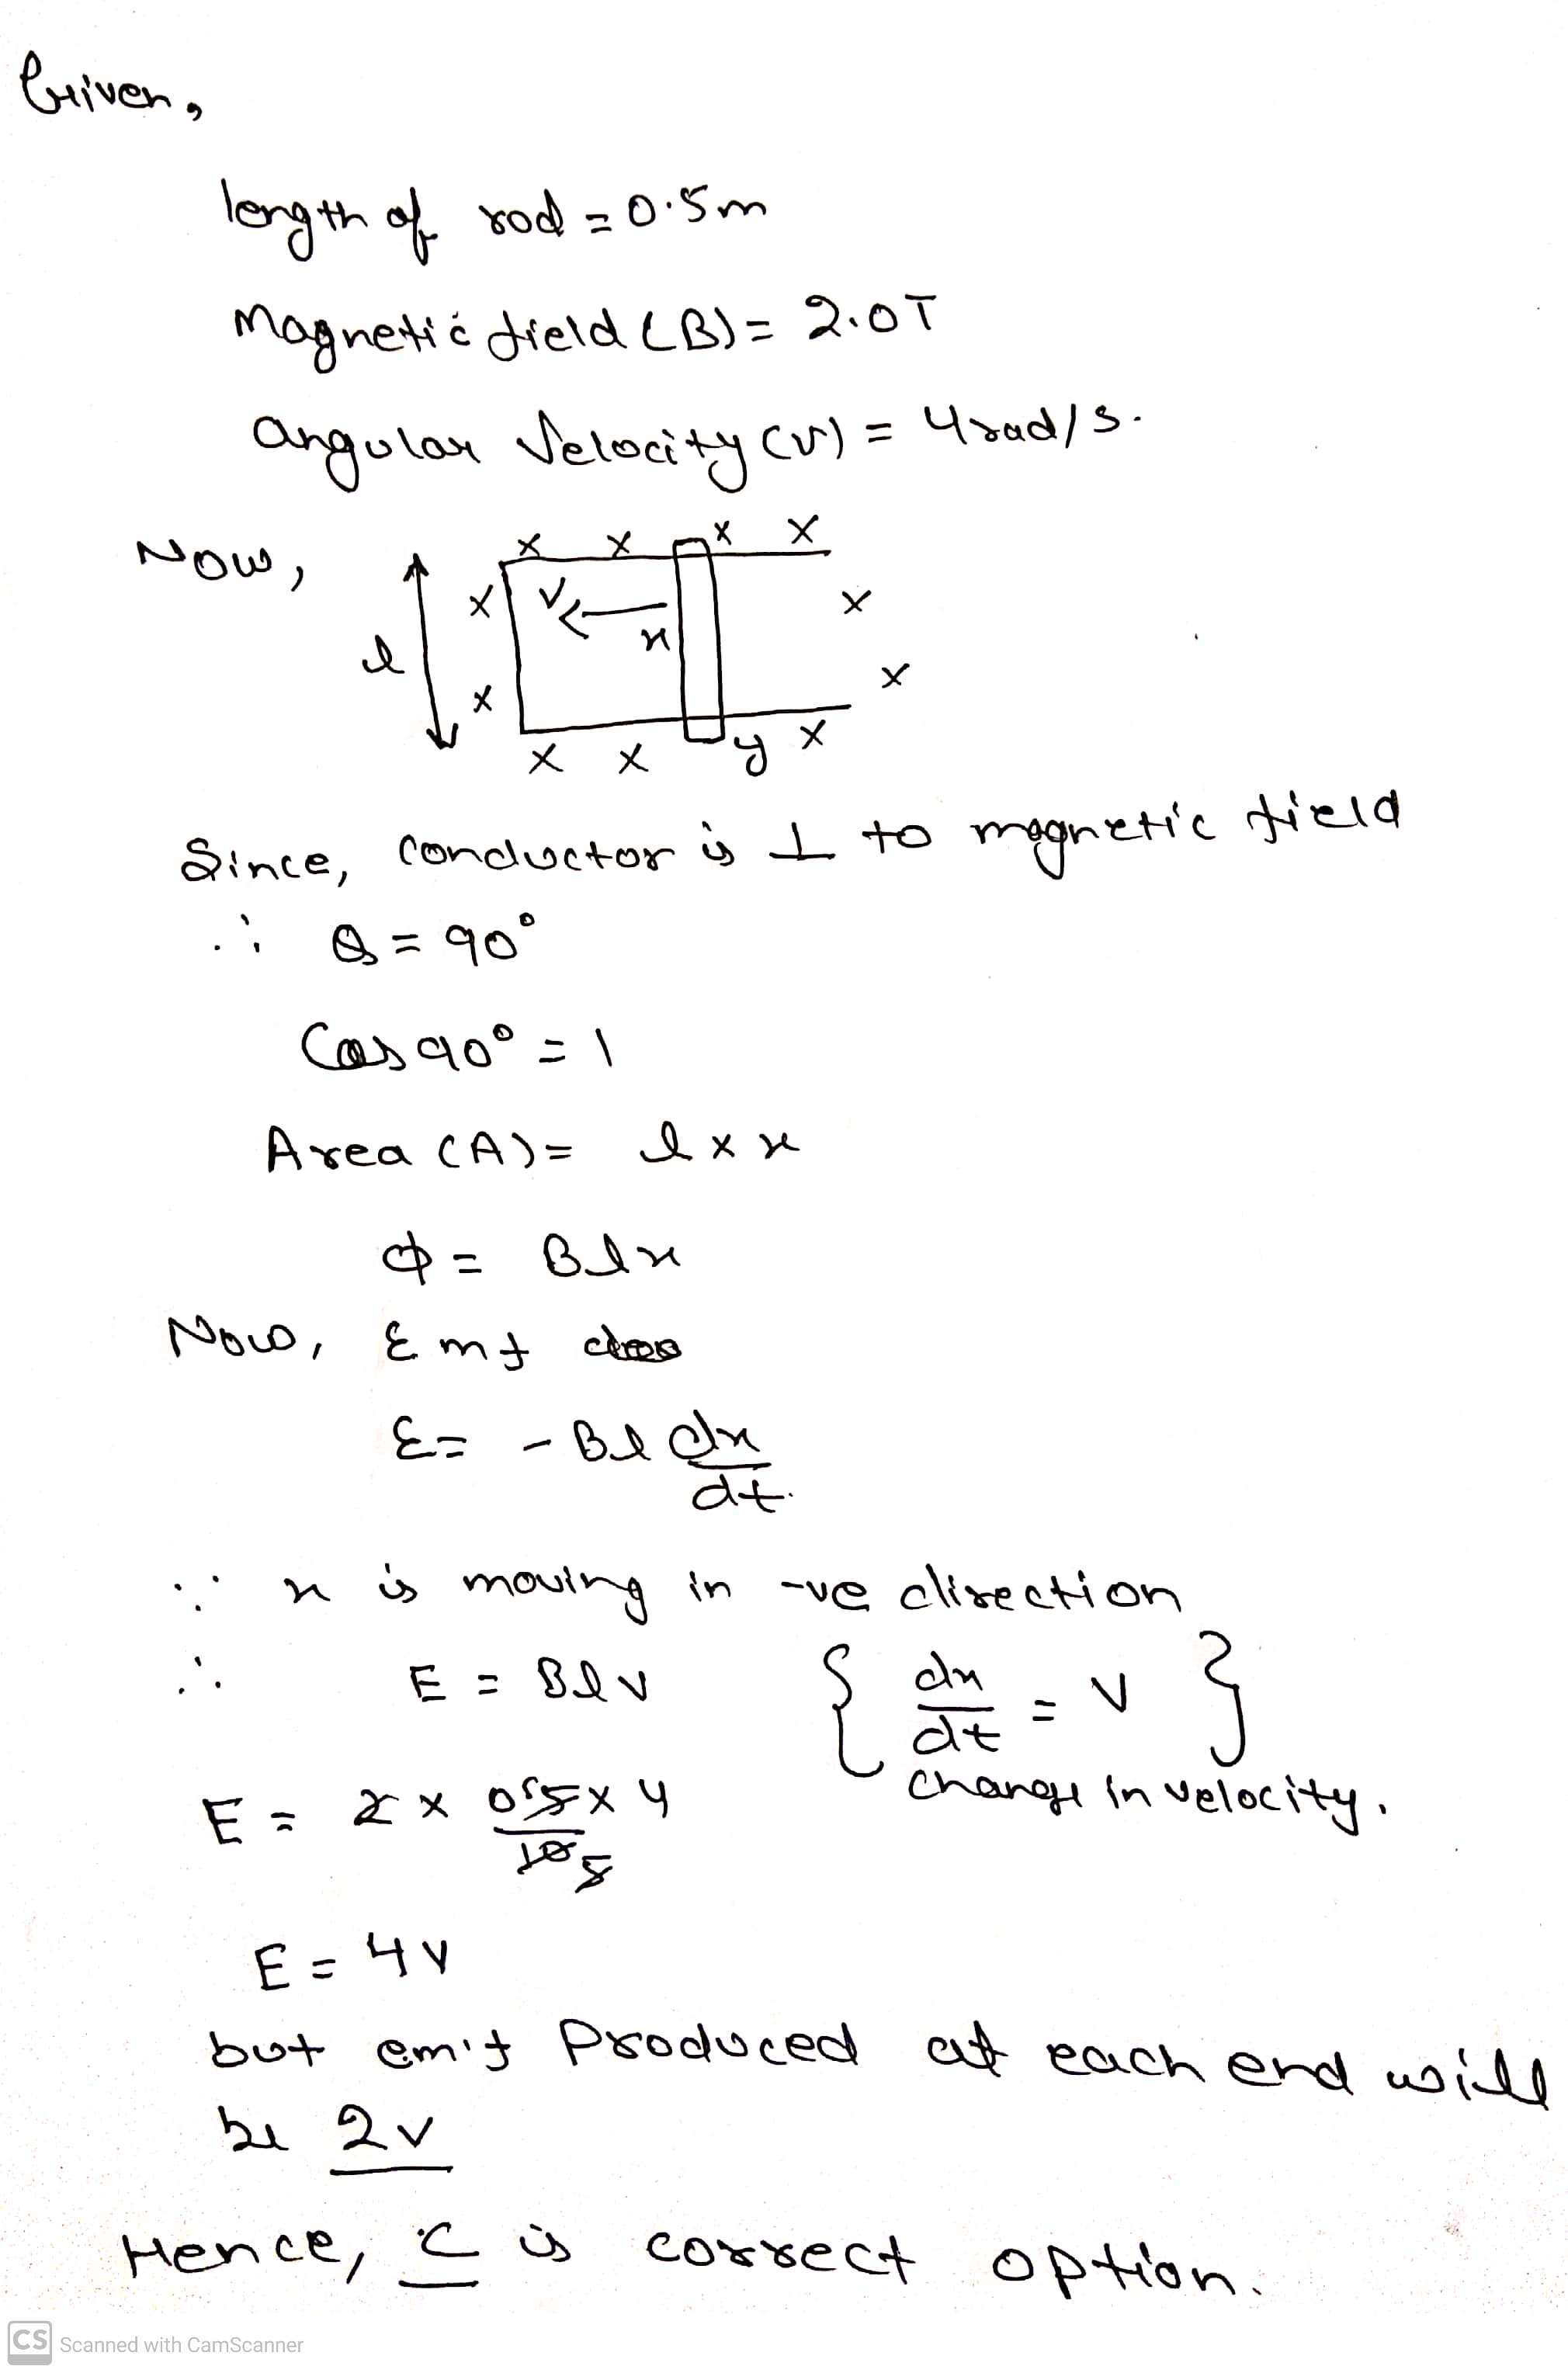 Given,
length of rod = 0.5m
Magnetic field (B) = 2.0T
angular velocity (v) = 4rad/s.
Now,
x x x x
x v x x
l
x x
x x y x
Since, conductor is ⊥ to magnetic field
∴ θ = 90°
Cos 90° = 1
Area (A) = l × x
Φ = Blx
Now, Emf
ε = - Bl dx/dt.
∵ x is moving in -ve direction
∴ E = Blv { dx/dt = v }
change in velocity.
E = 2 × 05/10 × 4
E = 4v
but emf produced at each end will
be 2v
Hence, C is correct option.
CS Scanned with CamScanner